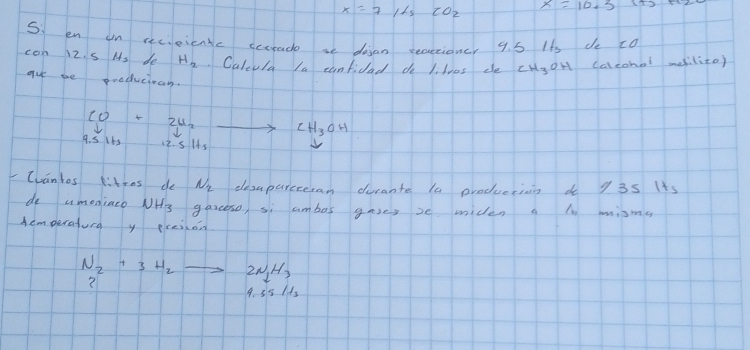 x = 7 lts CO2
Si en un recipiente cerrado se dejan reaccionar 9.5 lts de CO
con 12.5 lts de H2. Calcula la cantidad de litros de CH3OH (alcohol metílico)
que se produciran.
CO + 2H2 → CH3OH
9.5 lts 12.5 lts
- Cuántos litros de N2 desapareceran durante la producción de 9.35 lts
de amoniaco NH3 gaseoso, si ambos gases se miden a la misma
temperatura y presión.
N2 + 3 H2 → 2NH3
? 9.35 lts